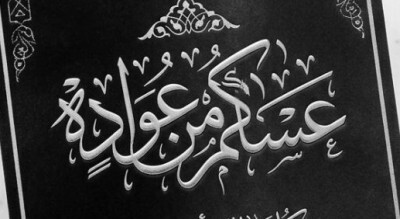 عَسَاكُم مِنْ عُوَّادِهْ